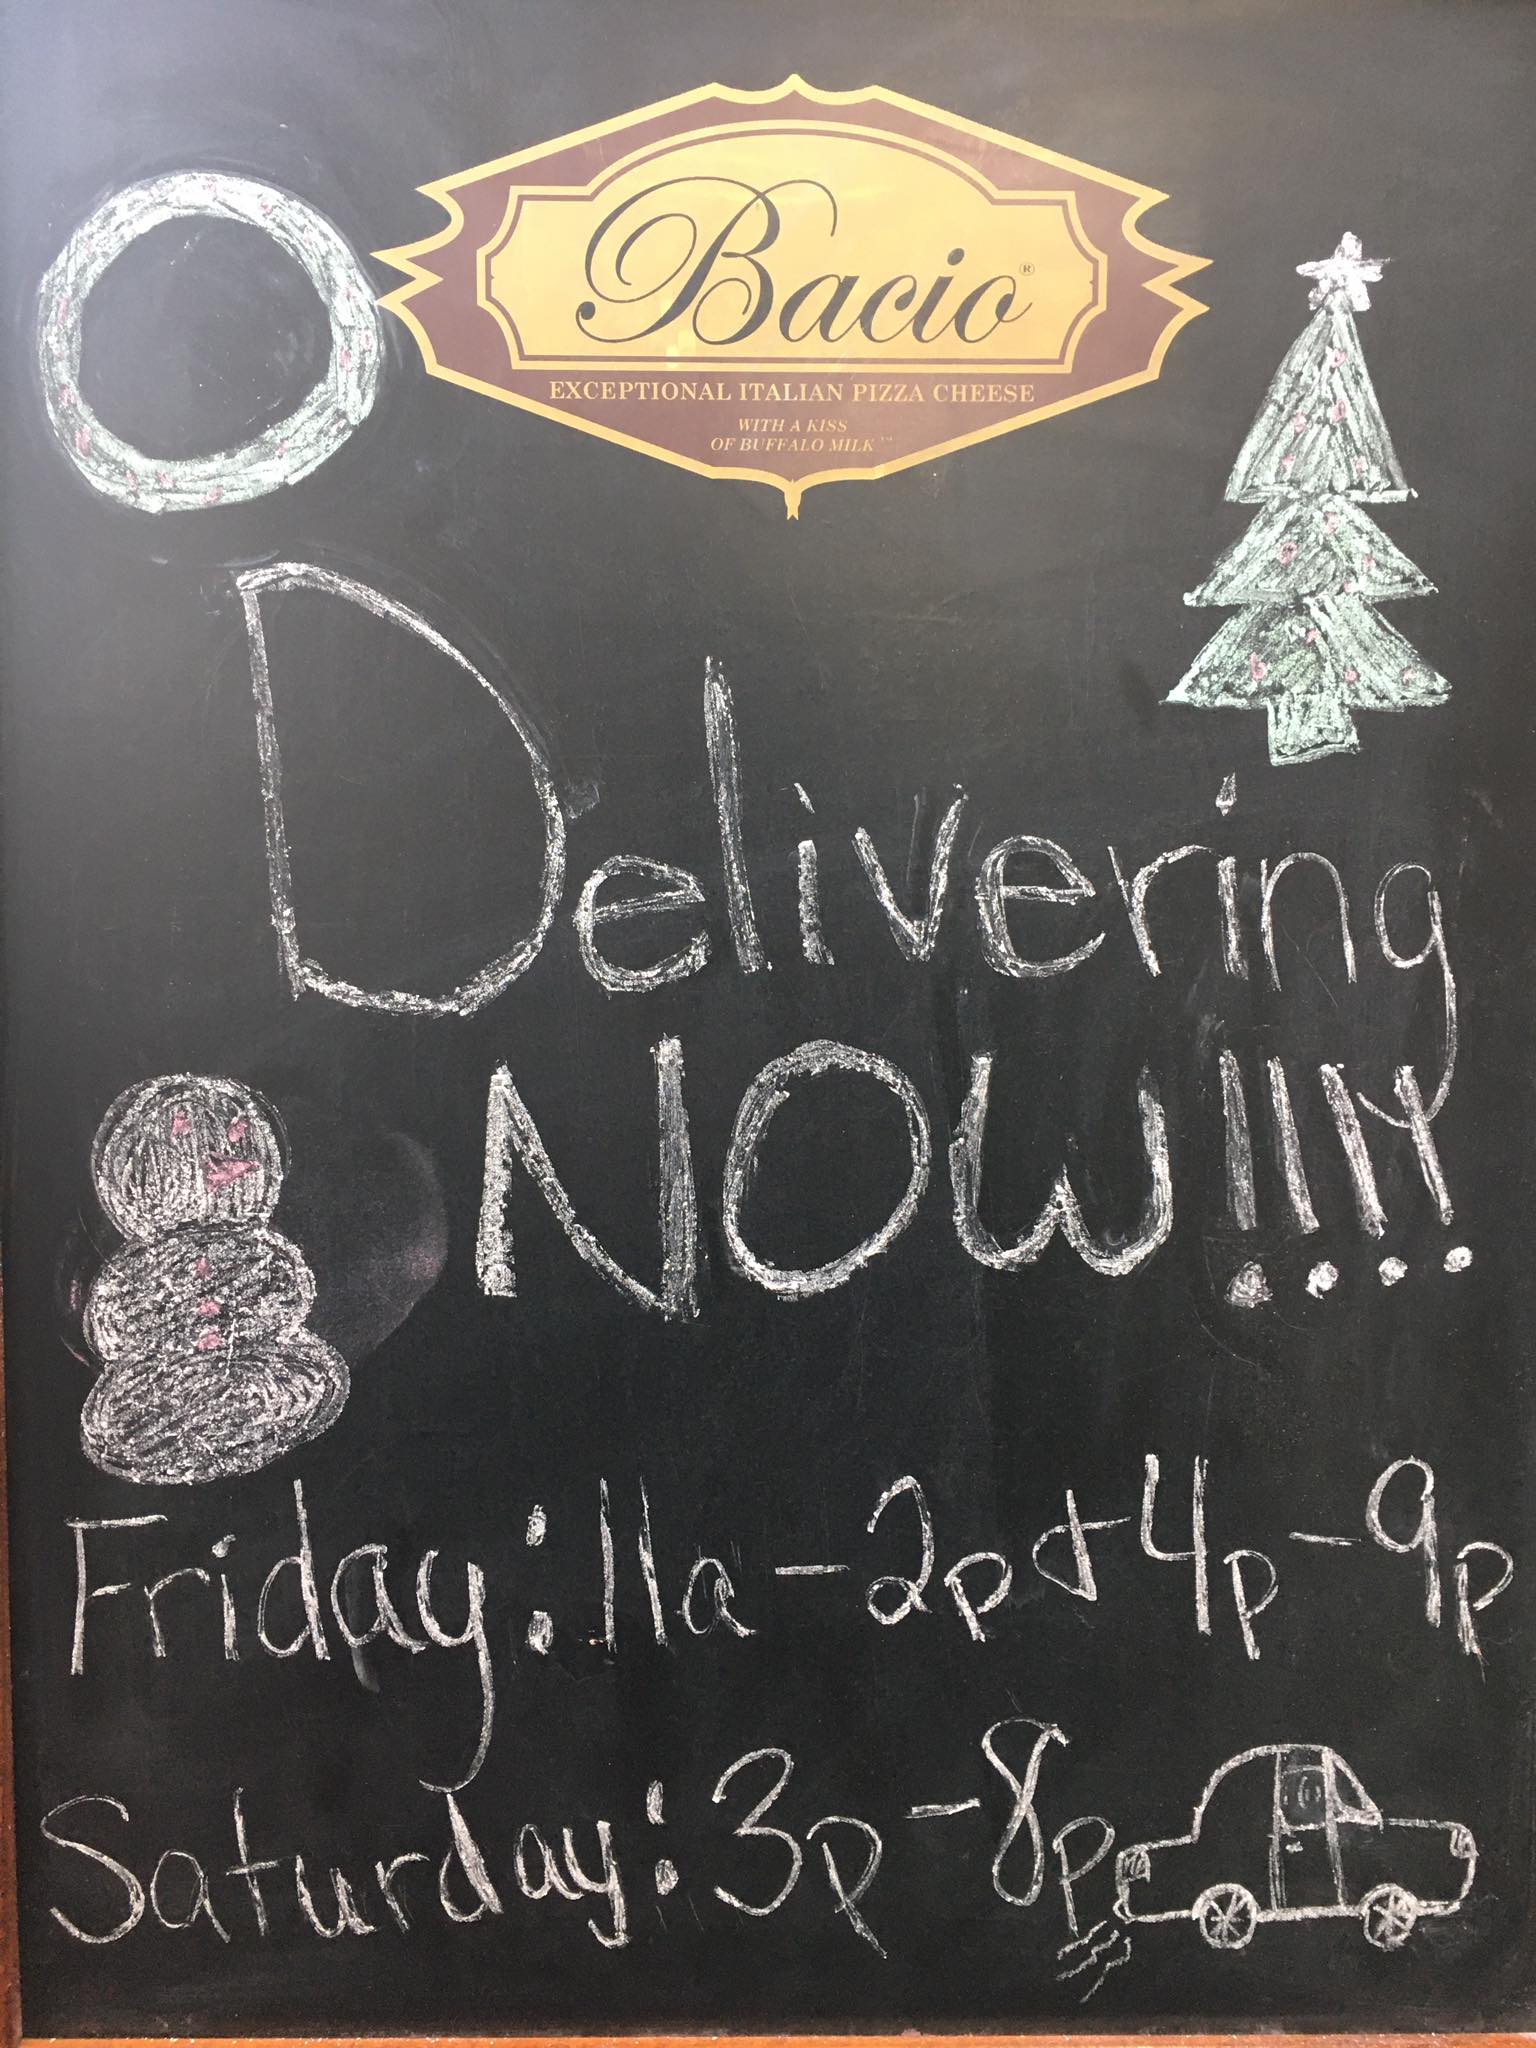 Bacio®
EXCEPTIONAL ITALIAN PIZZA CHEESE
WITH A KISS
OF BUFFALO MILK™
Delivering
NOW!!!!
Friday: 11a - 2p & 4p - 9p
Saturday: 3p - 8p